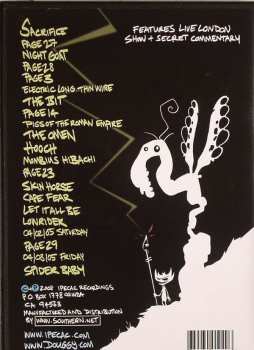 SACRIFICE
PAGE 27
NIGHT GOAT
PAGE 28
PAGE 3
ELECTRIC LONG, THIN WIRE
THE BIT
PAGE 14
PIGS OF THE ROMAN EMPIRE
THE OMEN
HOOCH
MOMBIUS HIBACHI
PAGE 23
SKIN HORSE
CAPE FEAR
LET IT ALL BE
LOWRIDER
04/02/05 SATURDAY
PAGE 29
04/08/05 FRIDAY
SPIDER BABY
FEATURES LIVE LONDON
SHOW + SECRET COMMENTARY
2008 IPECAC RECORDINGS
P.O. BOX 1778 ORINDA
CA 94563
MANUFACTURED AND DISTRIBUTION
BY WWW.SOUTHERN.NET
WWW.IPECAC.COM
WWW.DOUGGY.COM